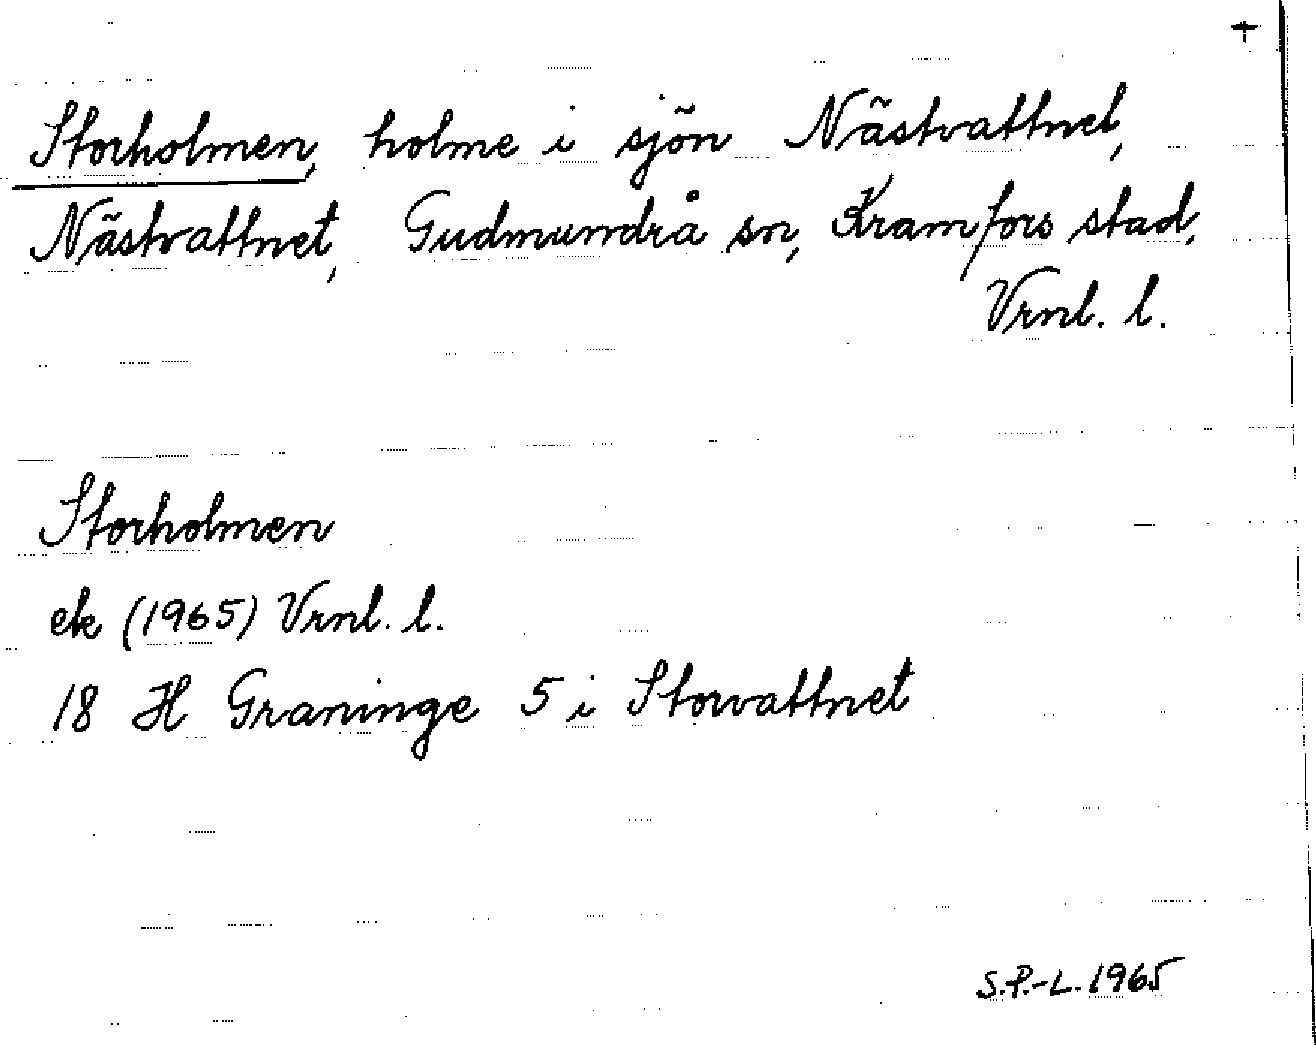 Storholmen, holme i sjön Nästvattnet,
Nästvattnet, Gudmundrå sn, Kramfors stad,
Vrnl. l.
Storholmen
ek (1965) Vrnl. l.
18 H Graninge 5 i Storvattnet
S.P.-L. 1965